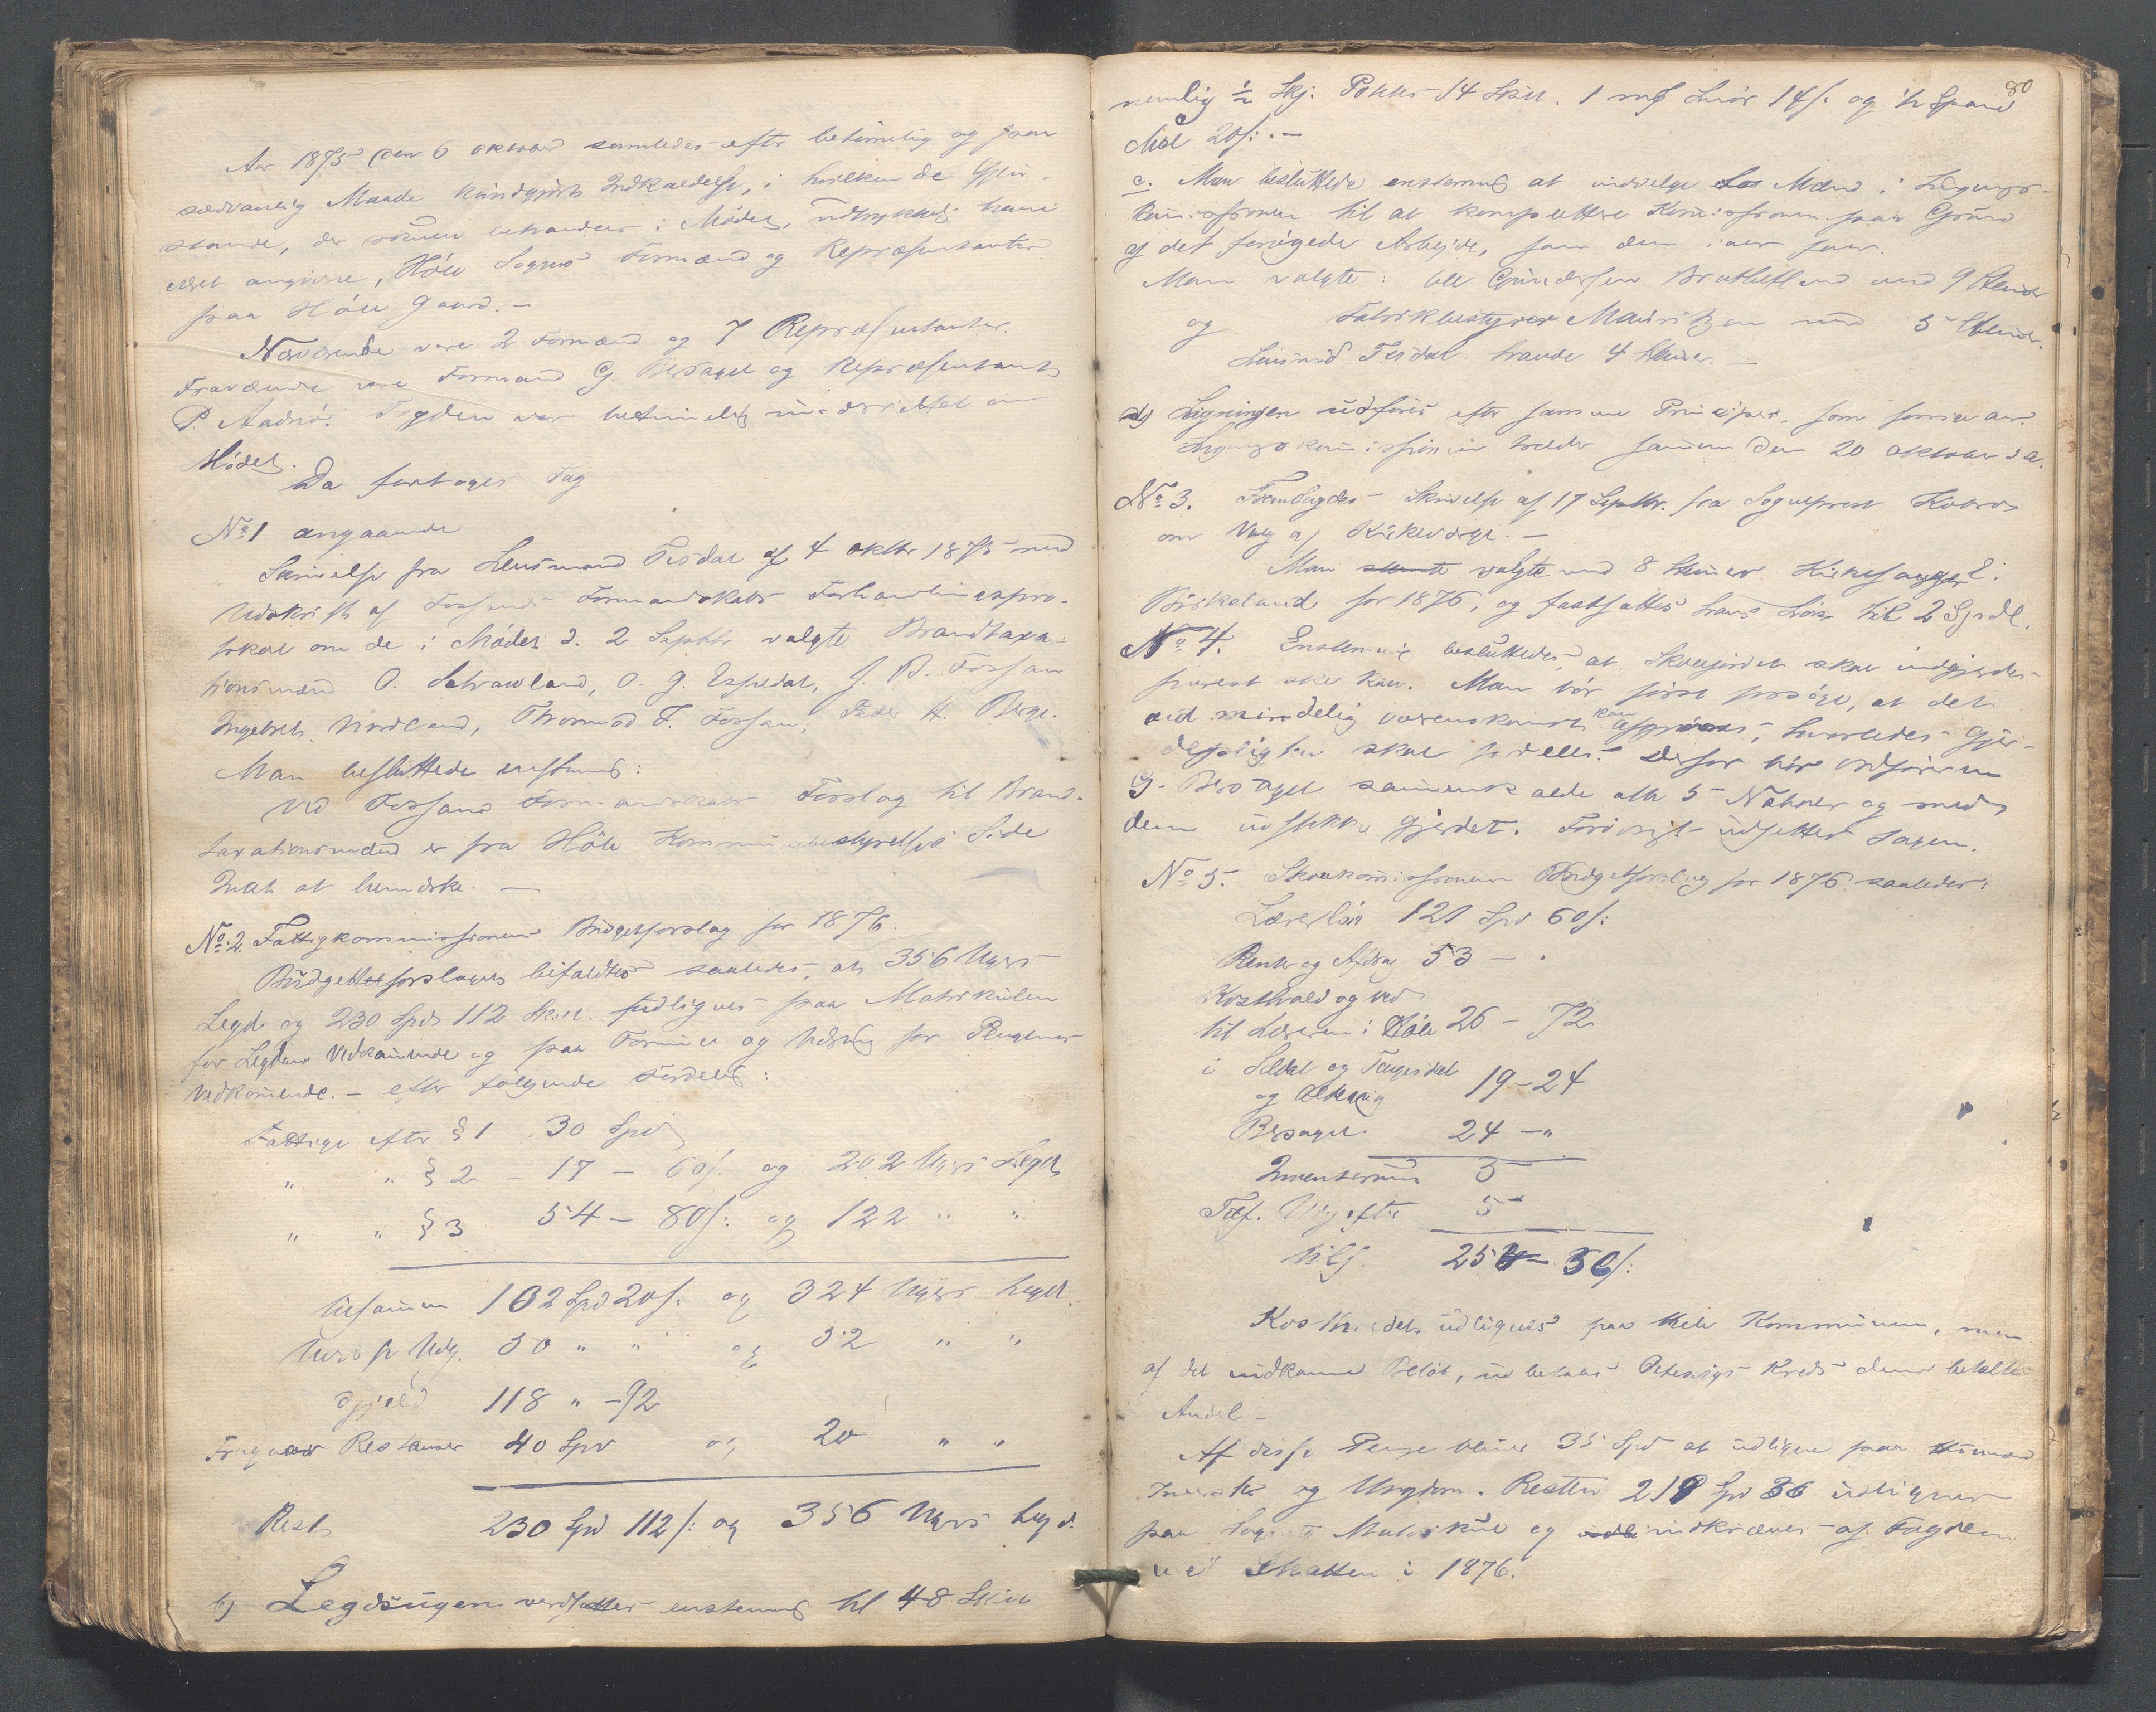 Aar 1875 den 6 oktober samledes efter betimelig og paa
sædvanlig Maade kundgjort Indkaldelse, i hvilken de Gjen-
stande, der skulle behandles i Mødet, udtrykkelig havde
været angivne, Høle Sogns Formænd og Repræsentanter
paa Høle Gaard. -
Nærværende vare 2 Formænd og 7 Repræsentanter.
Fraværende vare Formand G. Bersagel og Repræsentant
P. Aadnø. Fogden var betimelig underrettet om
Mødet.
Da foretoges Sag
No 1 angaaende
Skrivelse fra Lensmand Tesdal af 4 oktbr 1875 med
Udskrift af Fossands Formandskabs Forhandlingspro-
tokol om de i Mødet d. 2 Septbr valgte Brandtaxa-
tionsmænd O. Selvawland, O. G. Espedal, J. B. Fossan
Ingebret Nordland, Thormod F. Fossan, Peder H. Berge.
Man besluttede enstemmig:
Ved Fossand Formandskabs Forslag til Brand-
taxationsmænd er fra Høle Kommunebestyrelses Side
Intet at bemærke. —
No 2. Fattigkommissionens Budgetforslag for 1876.
Budgetforslaget bifaldtes saaledes, at 356 Ugers
Legd og 230 Spd 112 Skill. udlignes paa Matrikulen
for Legdens Vedkommende og paa Formue og Næring for Pengenes
Vedkommende. - efter følgende Fordeling:
Fattige efter § 1 30 Spd
" " § 2 - 17 - 60 s. og 202 Ugers Legd
" " § 3 54 - 80 s: og 122 " "
tilsammen 102 Spd 20 s: og 324 Ugers Legd.
Uvis for Udg. 50 " " og 52 " "
Gjeld 118 " - 92
Fragaar Restanser 40 Spd og 20 " "
Rest 230 Spd 112 s: og 356 Ugers Legd.
b) Legdsugen værdsættes enstemmig til 48 Skill
80
nemlig ½ Skj. Poteter 14 Skill. 1 mk Smør 14 s: og ½ Spand
Mel 20 s: . -
c. Man besluttede enstemmig at indvælge to Mænd i Lignings-
kommissionen til at komplettere Kommissionen paa Grund
af det forøgede Arbejde, som den i aar faar.
Man valgte: Ole Gundersen Bratteland med 9 Stemmer
og Fabrikbestyrer Mauritzen med 5 Stemmer.
Lensmand Tesdal havde 4 Stemmer. —
d) Ligningen udføres efter samme Prinsiper, som forrige aar.
Ligningskommissionen træder sammen den 20 oktober d. a.
No 3. Fremlagdes Skrivelse af 17 Septbr. fra Sogneprest
om Valg af Kirkeværge. -
Man valgte med 8 Stemmer Kirkesanger E.
Birkeland for 1876, og fastsattes hans Løn til 2 Spdl.
No 4. Enstemmig besluttedes, at Skolejordet skal indgjerdes
snarest ske kan. Man bør først forsøge, at det
ved mindelig overenskomst kan afgjøres, hvorledes Gjer-
depligten skal fordeles. Derfor bør Ordføreren
G. Bersagel sammenkalde alle 5 Naboer og med
dem udstikke Gjerdet. Forøvrigt udsættes Sagen.
No 5. Skolekommissionens Budgetforslag for 1876 saaledes:
Lærerløn 121 Spd 60 s:
Renter og Afdrag 53 - .
Kosthold og Ved
til Læreren i Høle 26 - 72
i Seldal og Tengesdal
og 19 - 24
Bersagel 24 - "
Inventarium 5
Tilf. Udgifter 5
tils. 254 - 36 s:
Kostholdet udlignes paa hele Kommunen, men
af det indkomne Beløb, udbetales Kreds dens betalte
Andel -
Af disse Penge bliver 35 Spd at udligne paa
og Ungdom. Resten 219 Spd 36 udlignes
paa Sognets Matrikul og indkræves af Fogden
med Skatten i 1876.